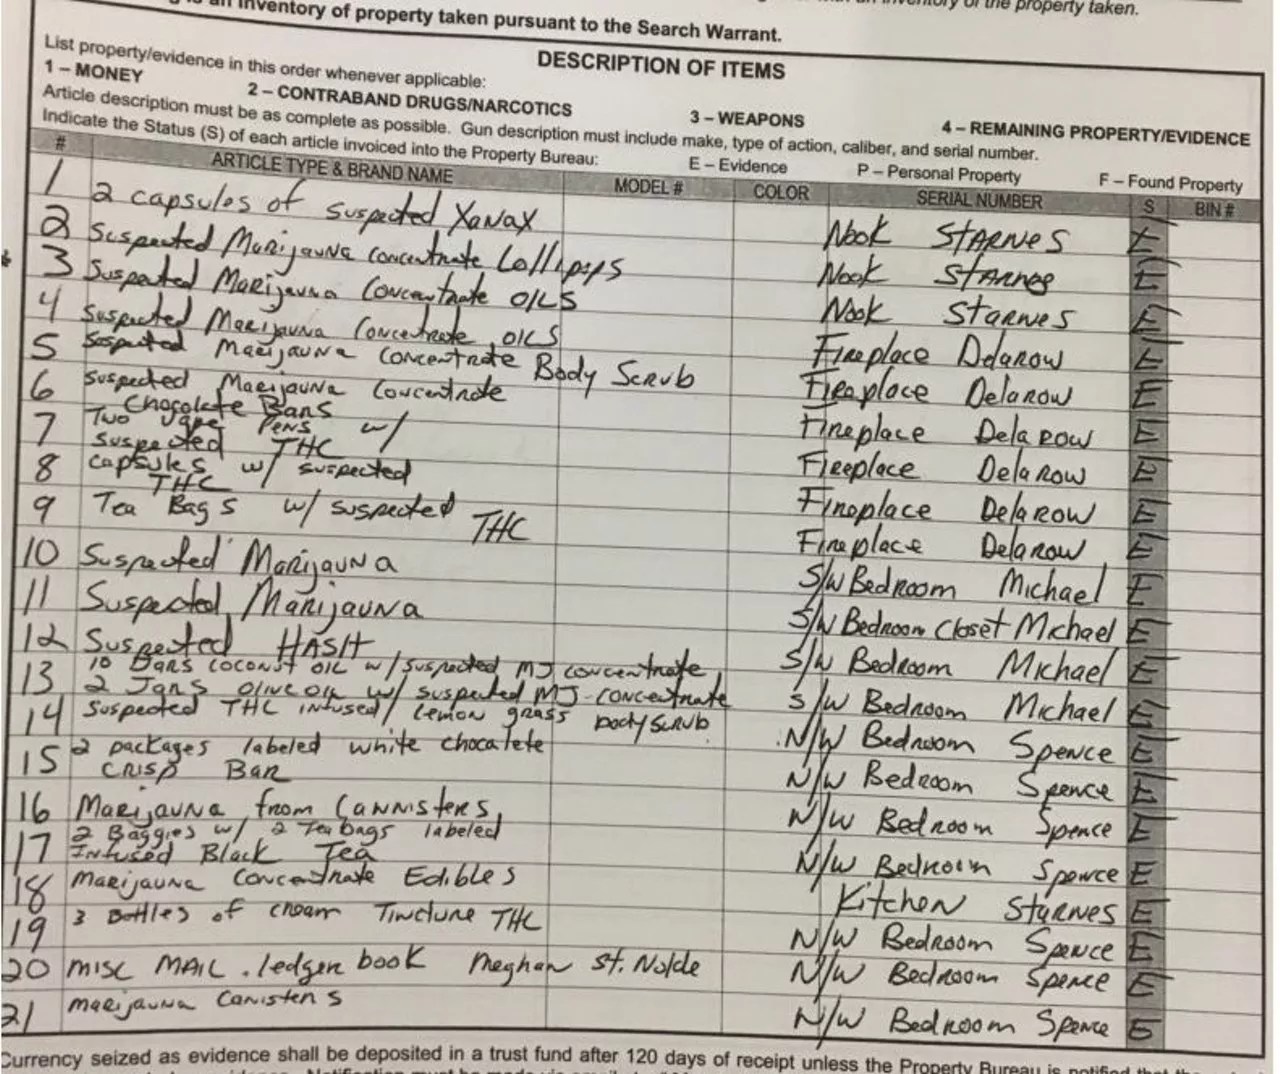 an inventory of property taken pursuant to the Search Warrant.
inventory of the property taken.
DESCRIPTION OF ITEMS
List property/evidence in this order whenever applicable:
1 – MONEY 2 – CONTRABAND DRUGS/NARCOTICS 3 – WEAPONS 4 – REMAINING PROPERTY/EVIDENCE
Article description must be as complete as possible. Gun description must include make, type of action, caliber, and serial number.
Indicate the Status (S) of each article invoiced into the Property Bureau: E – Evidence P – Personal Property F – Found Property
# ARTICLE TYPE & BRAND NAME MODEL # COLOR SERIAL NUMBER S BIN #
1 2 capsules of suspected Xanax Nook STARNES E
2 Suspected Marijauna Concentrate Lollipops Nook STARNES E
3 Suspected Marijauna Concentrate OILS Nook Starnes E
4 Suspected Marijauna Concentrate OILS Fireplace Delarow E
5 Suspected Marijauna Concentrate Body Scrub Fireplace Delarow E
6 Suspected Marijauna Concentrate Fireplace Delarow E
Chocolate Bars
7 Two Vape Pens w/ Fireplace Delarow E
suspected THC
8 capsules w/ suspected Fireplace Delarow E
THC
9 Tea Bags w/ suspected THC Fireplace Delarow E
10 Suspected Marijauna S/W Bedroom Michael E
11 Suspected Marijauna S/W Bedroom Closet Michael E
12 Suspected HASH S/W Bedroom Michael E
10 Bars coconut oil w/ suspected MJ concentrate
13 2 Jars olive oil w/ suspected MJ concentrate S/W Bedroom Michael E
14 Suspected THC infused/ lemon grass body scrub N/W Bedroom Spence E
15 2 packages labeled white chocalete N/W Bedroom Spence E
CRISP Bar
16 Marijauna from Cannisters N/W Bedroom Spence E
17 2 Baggies w/ 2 Tea bags labeled N/W Bedroom Spence E
Infused Black Tea
18 Marijauna Concentrate Edibles Kitchen Starnes E
19 3 Bottles of cream Tincture THC N/W Bedroom Spence E
20 misc MAIL . ledger book Meghan St. Nolde N/W Bedroom Spence E
21 marijauna Canisters N/W Bedroom Spence E
Currency seized as evidence shall be deposited in a trust fund after 120 days of receipt unless the Property Bureau is notified that the